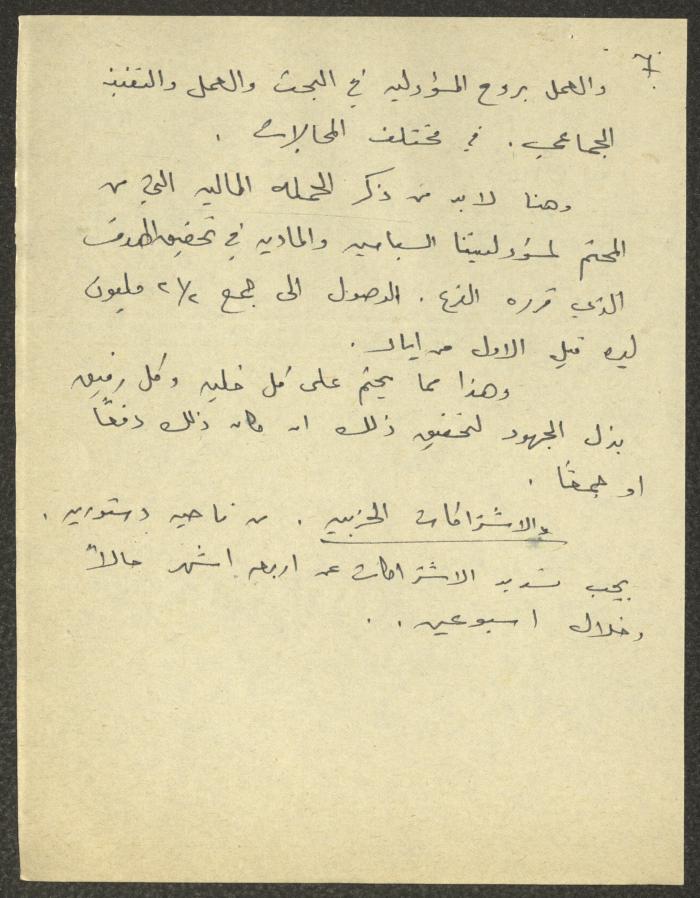 7
والعمل بروح المسؤوليه في البحث والعمل والتنفيذ
الجماعي. في مختلف المجالات .
وهنا لا بد من ذكر الحمله الماليه التي من
المحتم لمسؤوليتنا السياسيه والماديه في تحقيق الهدف
الذي قرره . الوصول الى جمع ٢ ١/٢ مليون
ليره قبل الاول من ايار .
وهذا مما يحتم على كل خليه وكل رفيق
بذل الجهود لتحقيق ذلك ان كان ذلك دفعاً
او جمعاً .
والاشتراكات الحزبيه . من ناحيه دستوريه .
يجب تسديد الاشتراكات عن اربعه اشهر حالاً
وخلال اسبوعين . .